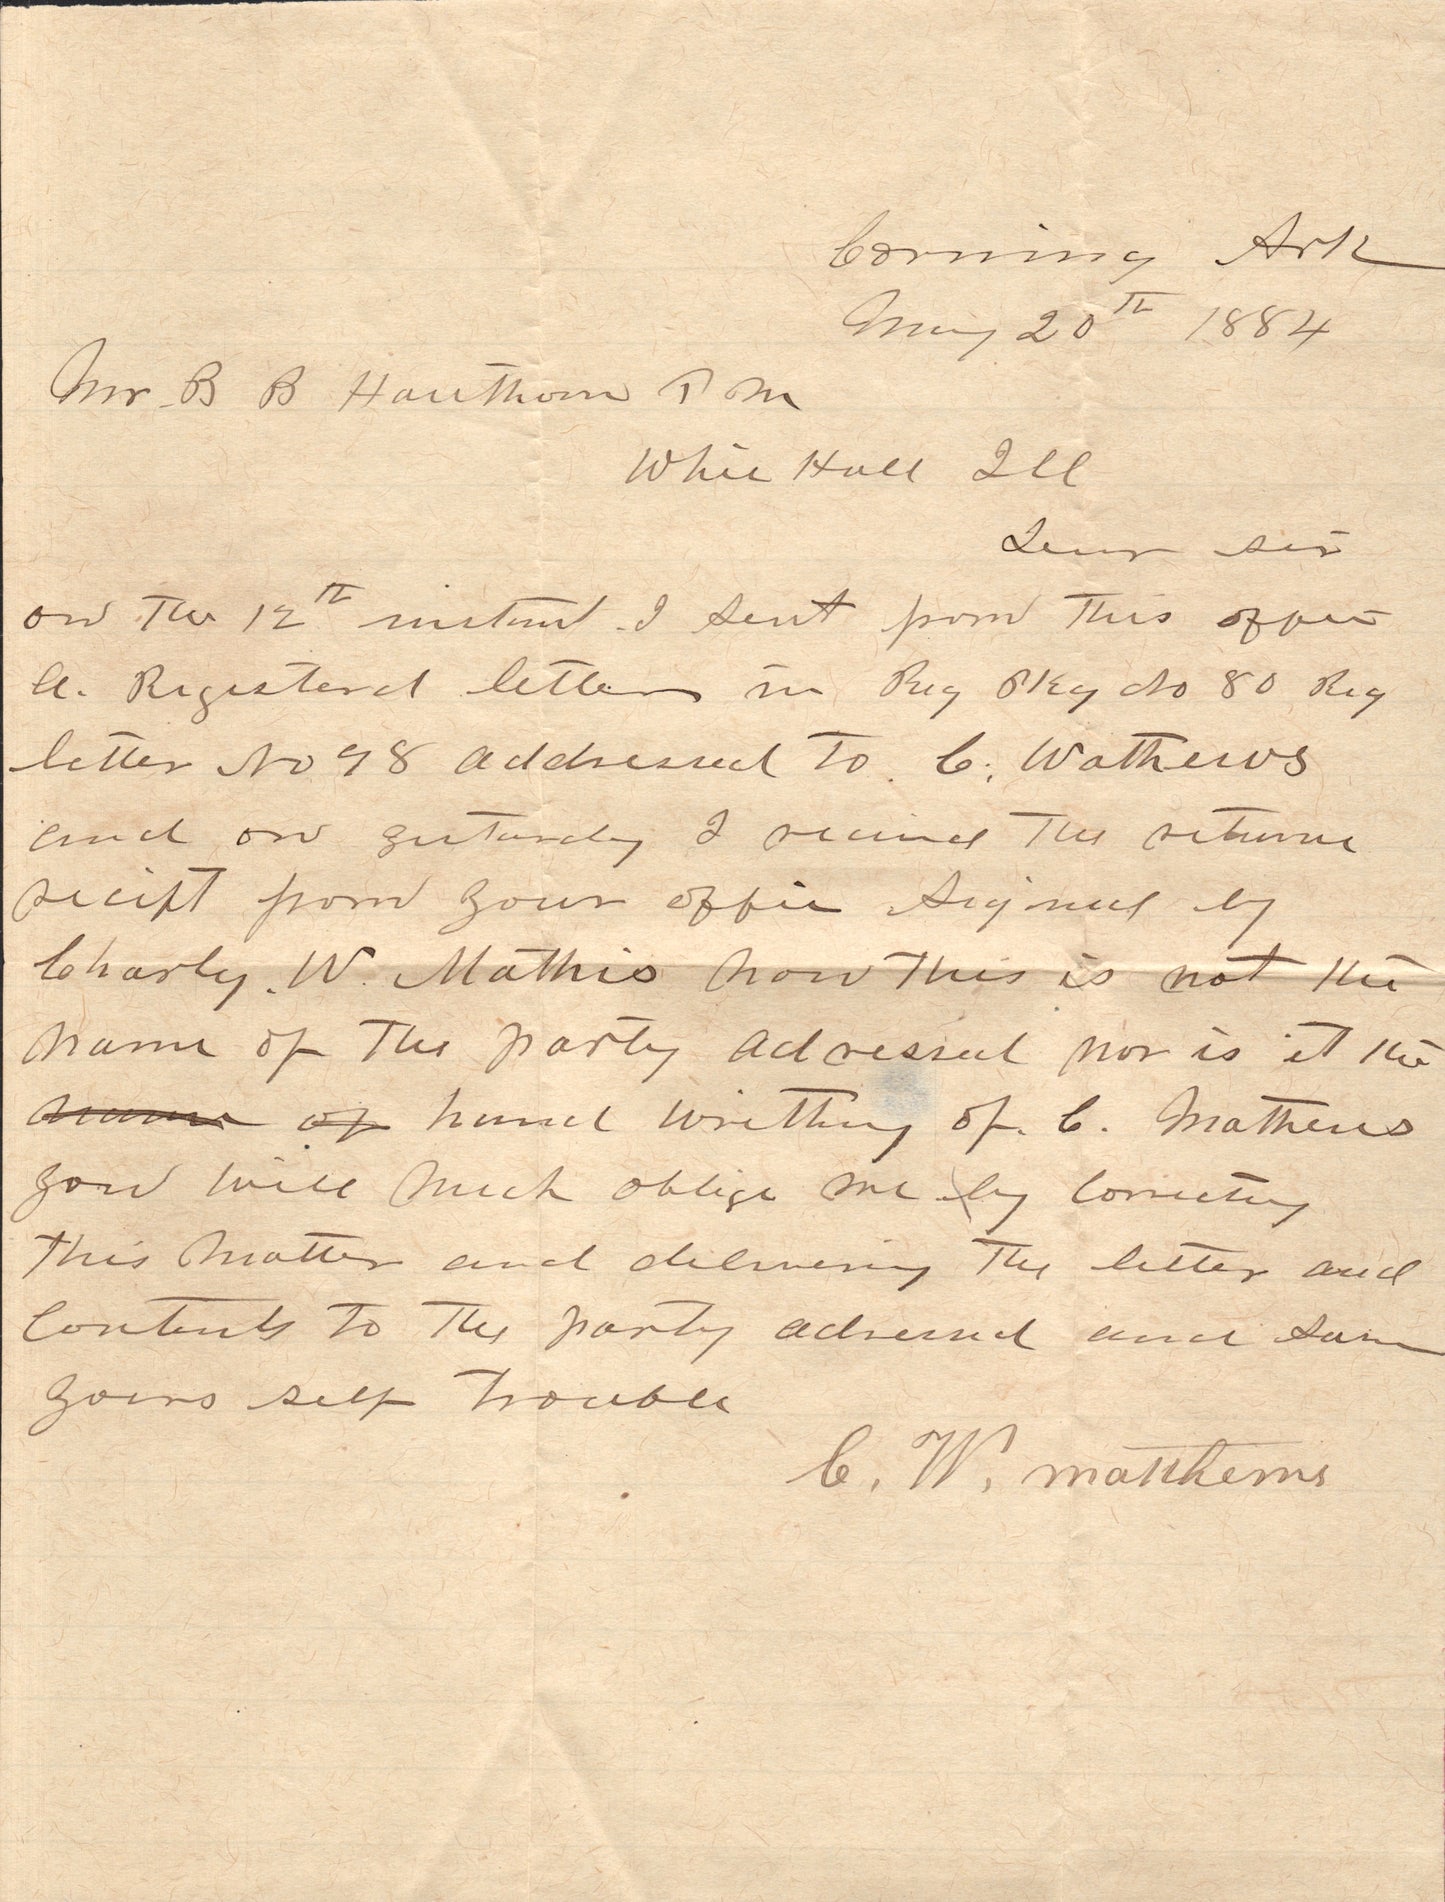 Corning Ark
May 20th 1884
Mr B B Hawthorn P M
White Hall Ill
Dear sir
on the 12th instant I sent from this office
a. Registerd letter in Reg PKg No 80 Reg
letter No 98 addressed to C. Mathews
and on yesturday I recived the returne
recipt from your office signed by
Charly. W. Mathis now this is not the
name of the party adressed nor is it the
name of hand writhing of. C. Mathews
you will much oblige me by correcting
this matter and delivering the letter and
contents to the party adressed and save
yours self trouble
C. W. Matthews